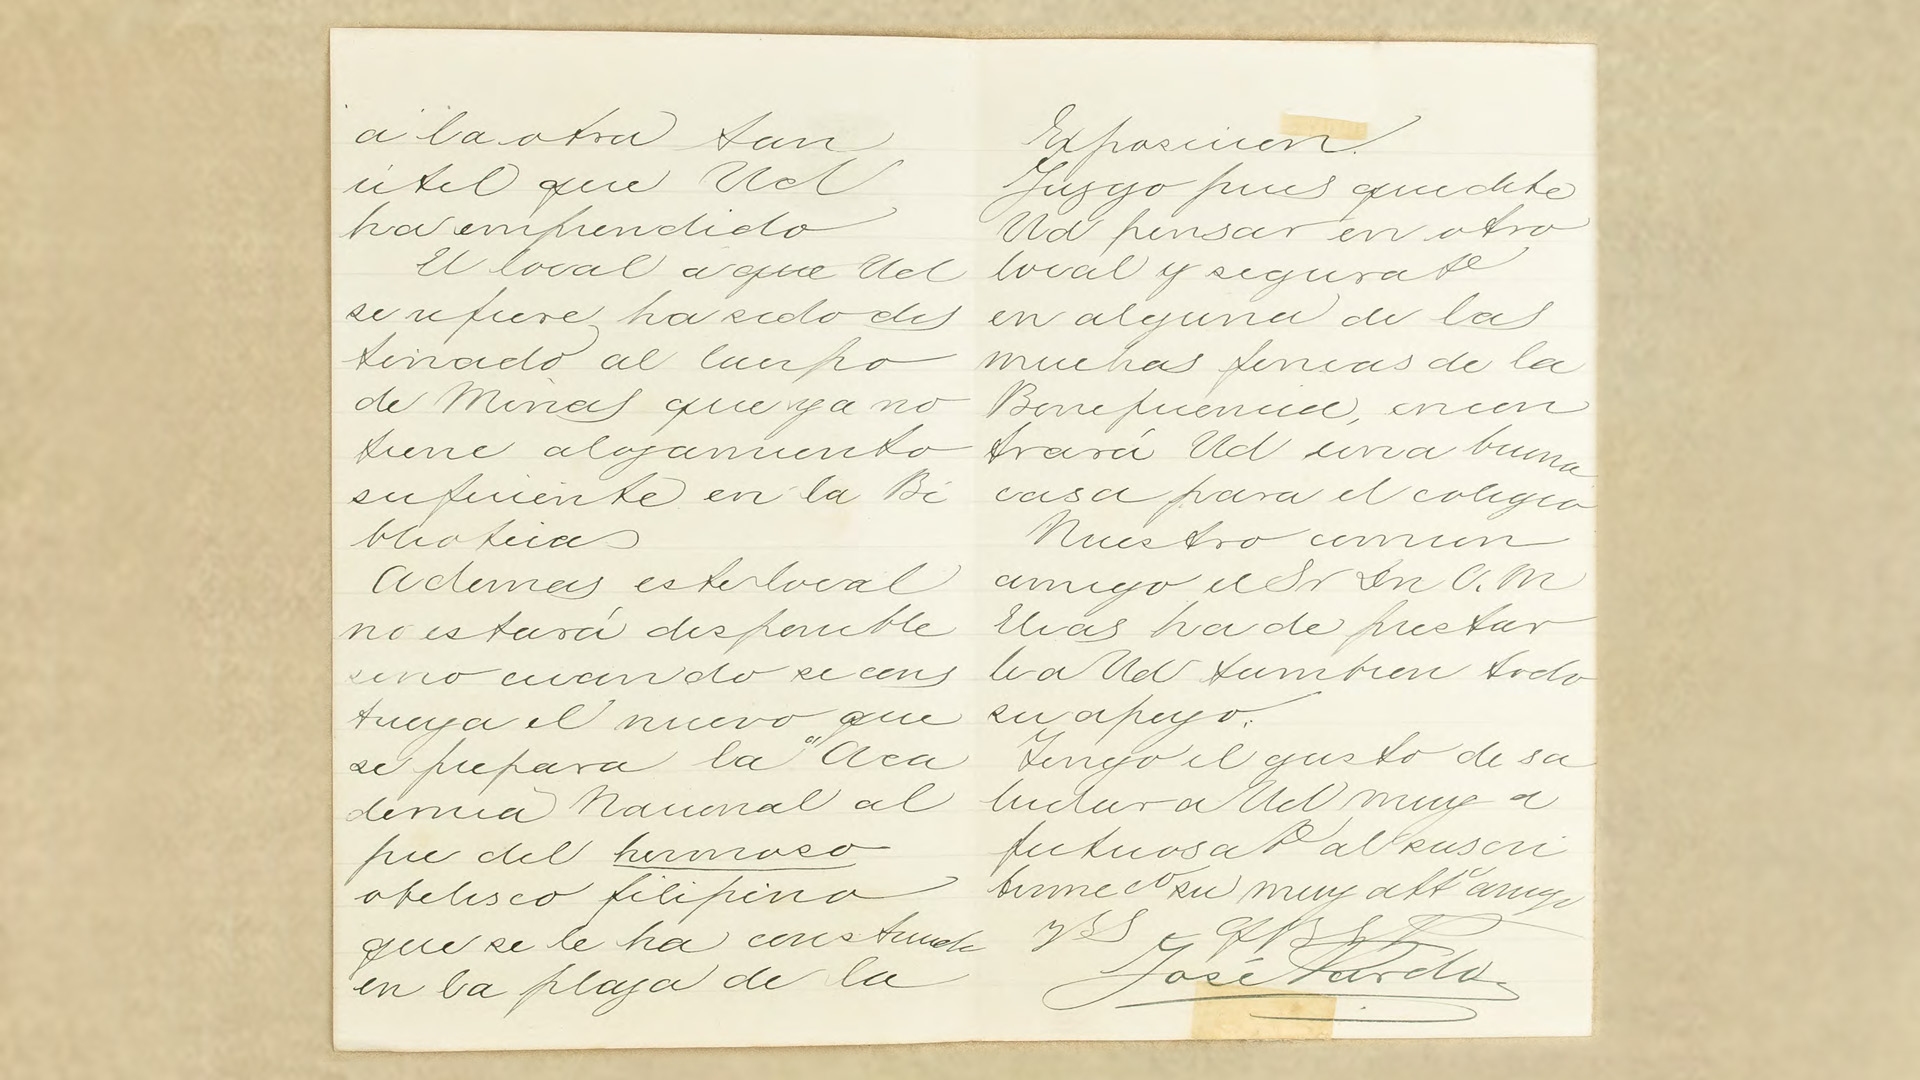 á la otra tan
útil que Ud
ha emprendido
El local a que Ud
se refiere, ha sido des
tinado al Cuerpo
de Minas que ya no
tiene alojamiento
suficiente en la Bi
blioteca
Ademas este local
no estará disponible
sino cuando se cons
truya el nuevo que
se prepara a la "Aca
demia Nacional al
pie del hermoso
obelisco filipino
que se le ha construido
en la plaza de la
Exposicion.
Juzgo pues que debe
Ud pensar en otro
local y segurate
en alguna de las
muchas fincas de la
Beneficencia, encon
trará Ud una buena
casa para el colegio
Nuestro comun
amigo el Sr Dn A. M
Elias ha de prestar
le a Ud tambien todo
su apoyo.
Tengo el gusto de sa
ludar a Ud muy a
fectuosate al suscri
birme co su muy atto amigo
y SS
José Pardo